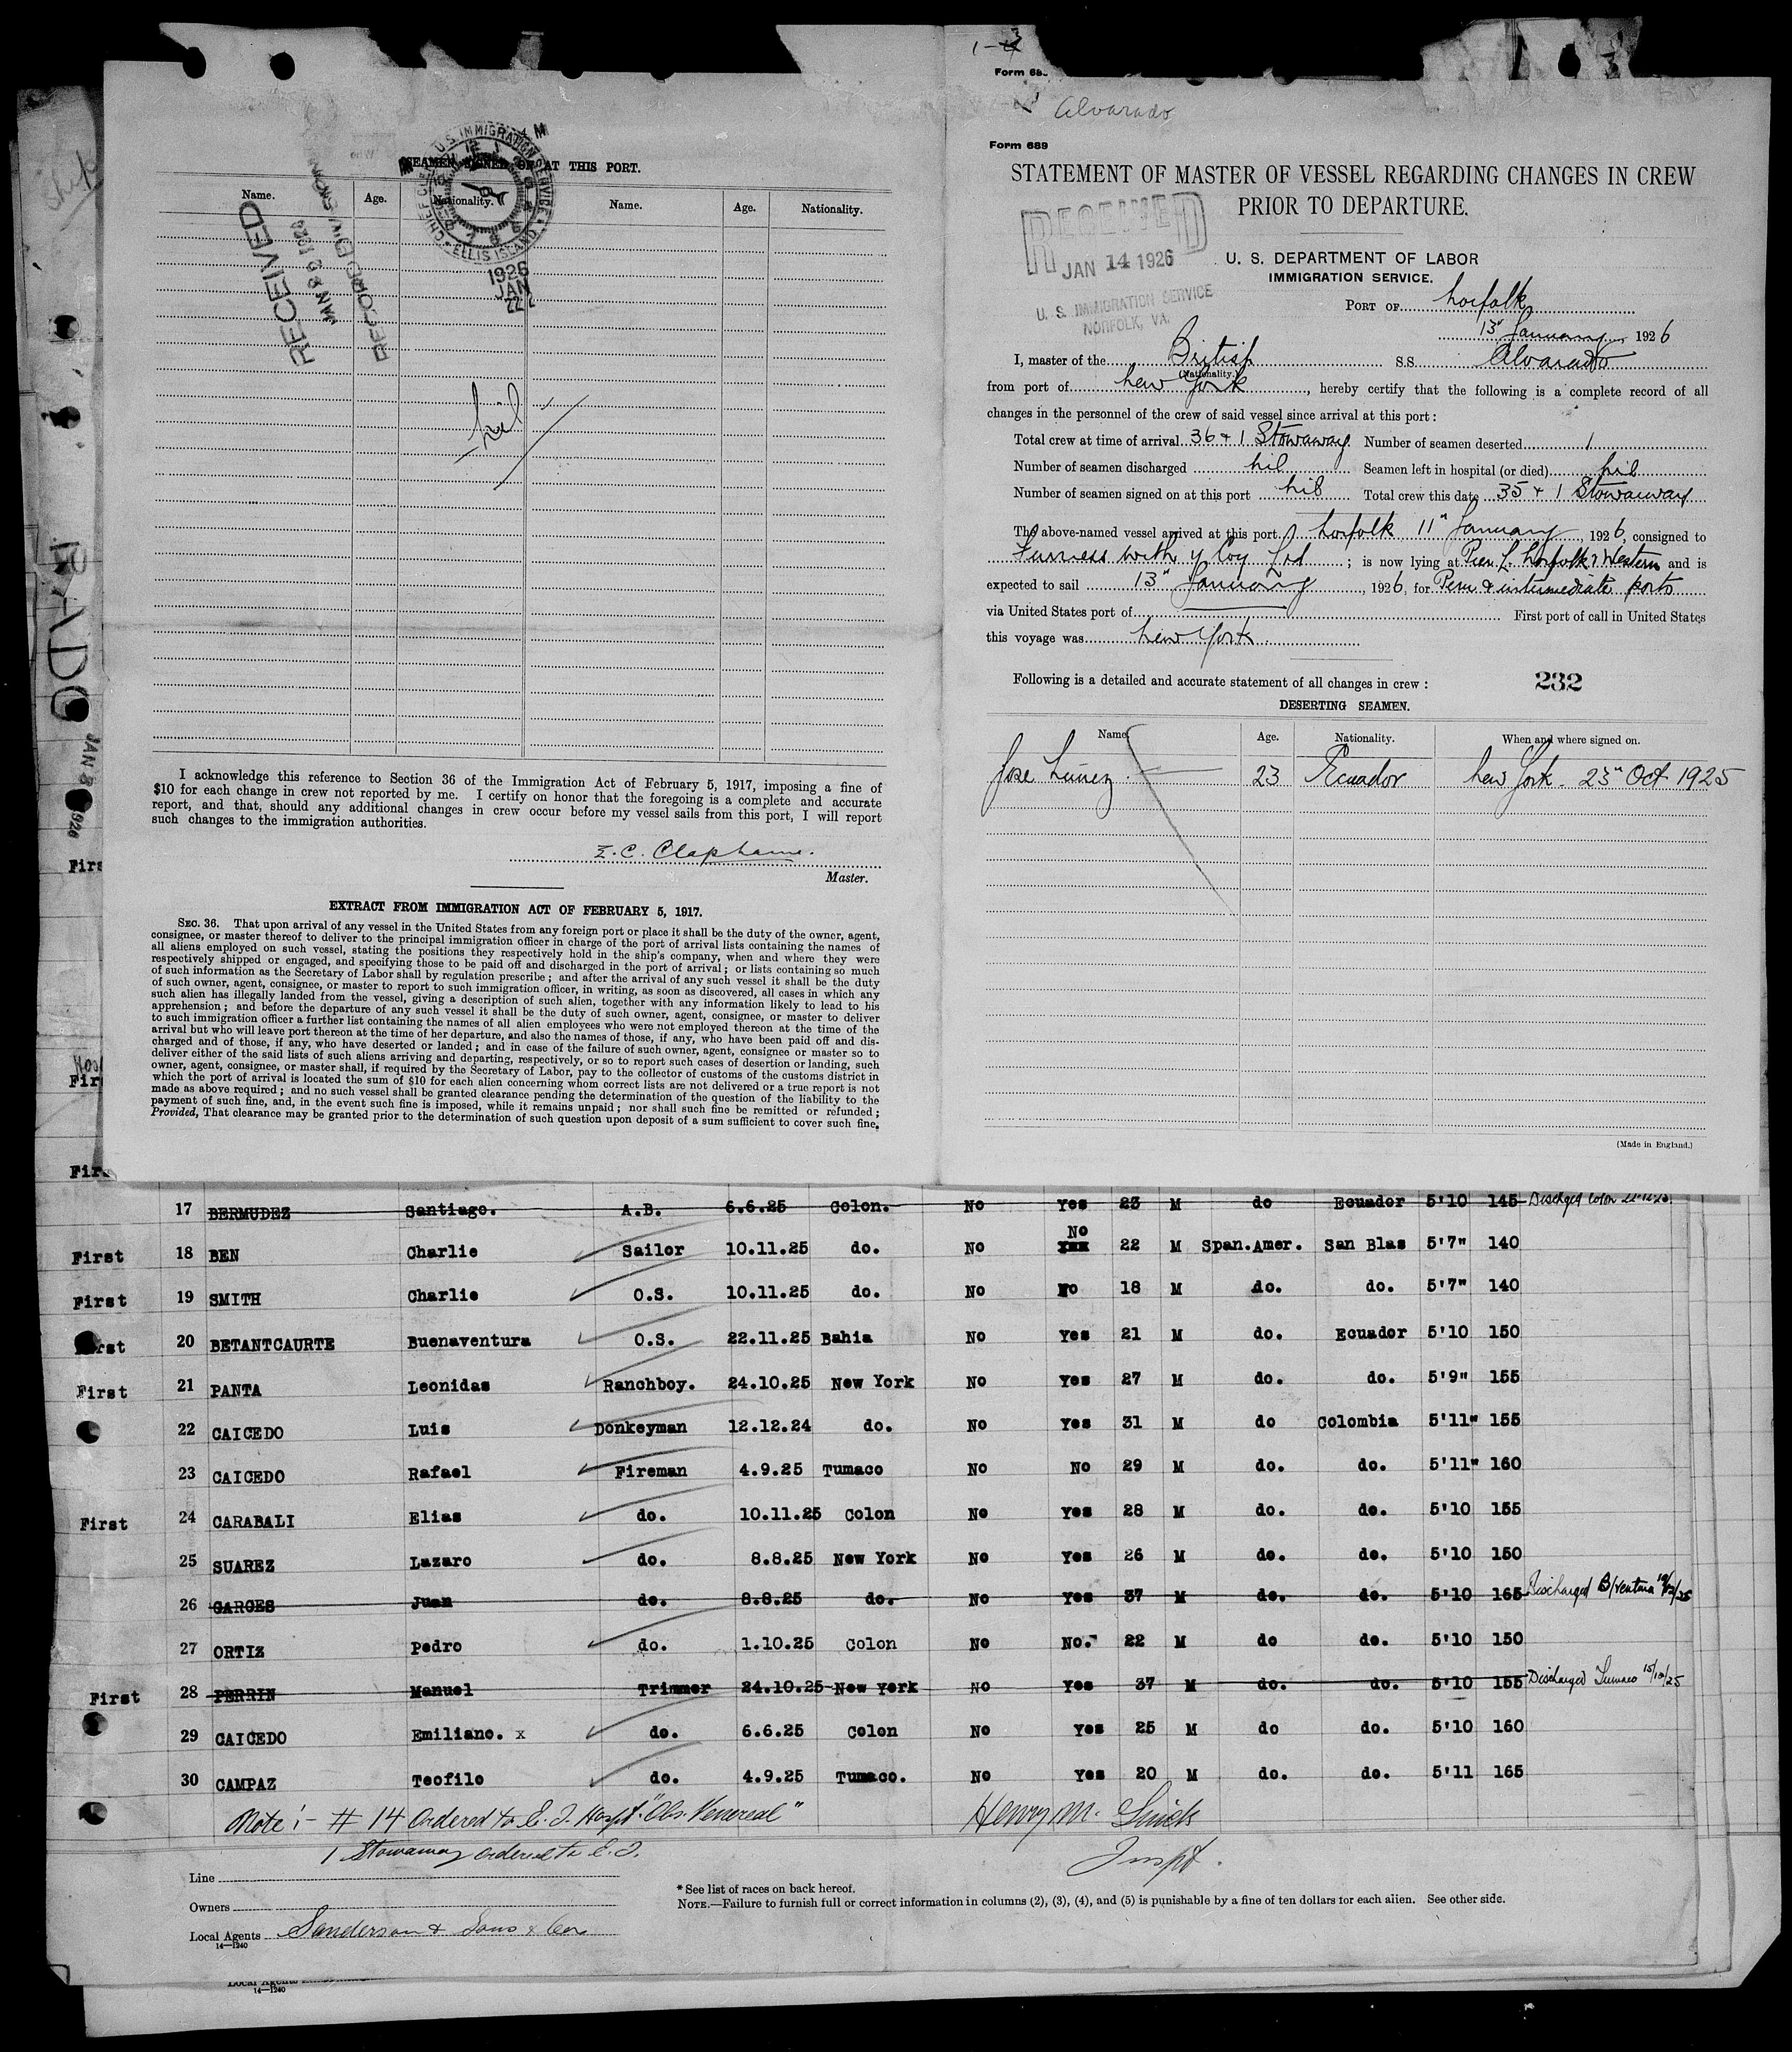 SEAMEN SIGNED ON AT THIS PORT.
Name. Age. Nationality. Name. Age. Nationality.
CHIEF U.S. IMMIGRATION SERVICE ELLIS ISLAND
1926
JAN
22
RECEIVED
RECORD DIVISION
Nil
I acknowledge this reference to Section 36 of the Immigration Act of February 5, 1917, imposing a fine of
$10 for each change in crew not reported by me. I certify on honor that the foregoing is a complete and accurate
report, and that, should any additional changes in crew occur before my vessel sails from this port, I will report
such changes to the immigration authorities.
E. C. Claphame.
Master.
EXTRACT FROM IMMIGRATION ACT OF FEBRUARY 5, 1917.
SEC. 36. That upon arrival of any vessel in the United States from any foreign port or place it shall be the duty of the owner, agent,
consignee, or master thereof to deliver to the principal immigration officer in charge of the port of arrival lists containing the names of
all aliens employed on such vessel, stating the positions they respectively hold in the ship's company, when and where they were
respectively shipped or engaged, and specifying those to be paid off and discharged in the port of arrival; or lists containing so much
of such information as the Secretary of Labor shall by regulation prescribe; and after the arrival of any such vessel it shall be the duty
of such owner, agent, consignee, or master to report to such immigration officer, in writing, as soon as discovered, all cases in which any
such alien has illegally landed from the vessel, giving a description of such alien, together with any information likely to lead to his
apprehension; and before the departure of any such vessel it shall be the duty of such owner, agent, consignee, or master to deliver
to such immigration officer a further list containing the names of all alien employees who were not employed thereon at the time of the
arrival but who will leave port thereon at the time of her departure, and also the names of those, if any, who have been paid off and dis-
charged and of those, if any, who have deserted or landed; and in case of the failure of such owner, agent, consignee or master so to
deliver either of the said lists of such aliens arriving and departing, respectively, or so to report such cases of desertion or landing, such
owner, agent, consignee, or master shall, if required by the Secretary of Labor, pay to the collector of customs of the customs district in
which the port of arrival is located the sum of $10 for each alien concerning whom correct lists are not delivered or a true report is not
made as above required; and no such vessel shall be granted clearance pending the determination of the question of the liability to the
payment of such fine, and, in the event such fine is imposed, while it remains unpaid; nor shall such fine be remitted or refunded;
Provided, That clearance may be granted prior to the determination of such question upon deposit of a sum sufficient to cover such fine.
1-3
Form 68
Alvarado
Form 689
STATEMENT OF MASTER OF VESSEL REGARDING CHANGES IN CREW
PRIOR TO DEPARTURE.
RECEIVED
JAN 14 1926
U. S. IMMIGRATION SERVICE
NORFOLK, VA.
U. S. DEPARTMENT OF LABOR
IMMIGRATION SERVICE.
PORT OF Norfolk
13" January, 1926
I, master of the British S.S. Alvarado
(Nationality.)
from port of New York, hereby certify that the following is a complete record of all
changes in the personnel of the crew of said vessel since arrival at this port:
Total crew at time of arrival 36 + 1 Stowaway Number of seamen deserted 1
Number of seamen discharged Nil Seamen left in hospital (or died) Nil
Number of seamen signed on at this port Nil Total crew this date 35 + 1 Stowaway
The above-named vessel arrived at this port Norfolk 11" January, 1926, consigned to
Furness Withy Coy Ltd; is now lying at Pier L. Norfolk & Western and is
expected to sail 13" January, 1926, for Peru & intermediate ports
via United States port of First port of call in United States
this voyage was New York.
Following is a detailed and accurate statement of all changes in crew: 232
DESERTING SEAMEN.
Name. Age. Nationality. When and where signed on.
Jose 23 Ecuador New York - 23" Oct 1925
(Made in England.)
17 BERMUDEZ Santiago. A.B. 6.6.25 Colon. No Yes 23 M do Ecuador 5'10 145 Discharged Colon
No
First 18 BEN Charlie Sailor 10.11.25 do. No 22 M Span.Amer. San Blas 5'7" 140
First 19 SMITH Charlie O.S. 10.11.25 do. No No 18 M do. do. 5'7" 140
First 20 BETANTCAURTE Buenaventura O.S. 22.11.25 Bahia No Yes 21 M do. Ecuador 5'10 150
First 21 PANTA Leonidas Ranchboy. 24.10.25 New York No Yes 27 M do. do. 5'9" 155
22 CAICEDO Luis Donkeyman 12.12.24 do. No Yes 31 M do Colombia 5'11" 155
23 CAICEDO Rafael Fireman 4.9.25 Tumaco No No 29 M do. do. 5'11" 160
First 24 CARABALI Elias do. 10.11.25 Colon No Yes 28 M do. do. 5'10 155
25 SUAREZ Lazaro do. 8.8.25 New York No Yes 26 M do. do. 5'10 150
26 GARCES Juan do. 8.8.25 do. No Yes 37 M do. do. 5'10 165 Discharged B/ventura
27 ORTIZ Pedro do. 1.10.25 Colon No No. 22 M do do. 5'10 150
First 28 PERRIN Manuel Trimmer 24.10.25 New York No Yes 37 M do. do. 5'10 155 Discharged Tumaco
29 CAICEDO Emiliano. x do. 6.6.25 Colon No Yes 25 M do do. 5'10 160
30 CAMPAZ Teofilo do. 4.9.25 Tumaco. No Yes 20 M do. do. 5'11 165
Note:- # 14 Ordered to E. I. Hospt. "Obs. Venereal" Henry M.
1 Stowaway ordered to E. I. Inspt.
Line
Owners
Local Agents Sanderson & Sons & Co
14—1240
* See list of races on back hereof.
NOTE.—Failure to furnish full or correct information in columns (2), (3), (4), and (5) is punishable by a fine of ten dollars for each alien. See other side.
Local Agents
14—1240